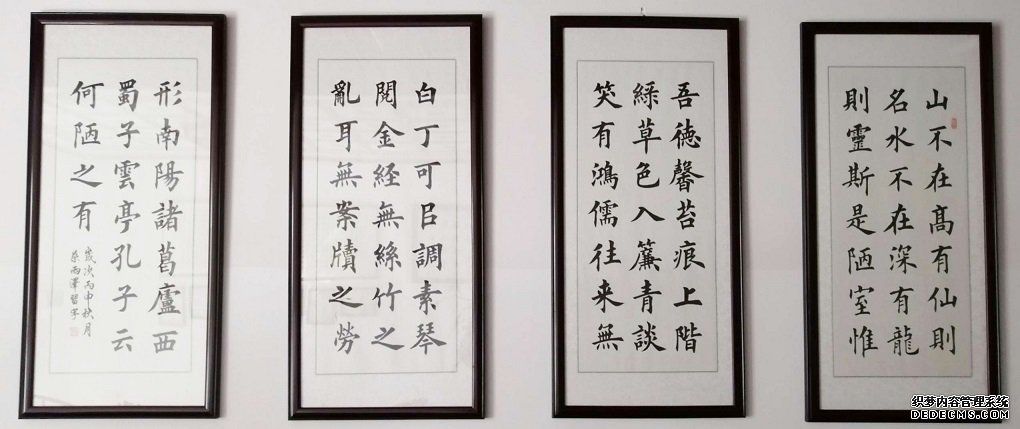 山不在髙有仙則
名水不在深有龍
則靈斯是陋室惟
吾徳馨苔痕上階
緑草色入簾青談
笑有鴻儒往来無
白丁可㠯調素琴
閲金経無絲竹之
亂耳無案牘之勞
形南陽諸葛廬西
蜀子雲亭孔子云
何陋之有
歲次丙申秋月
雨澤習字
织梦内容管理系统
DEDECMS.COM